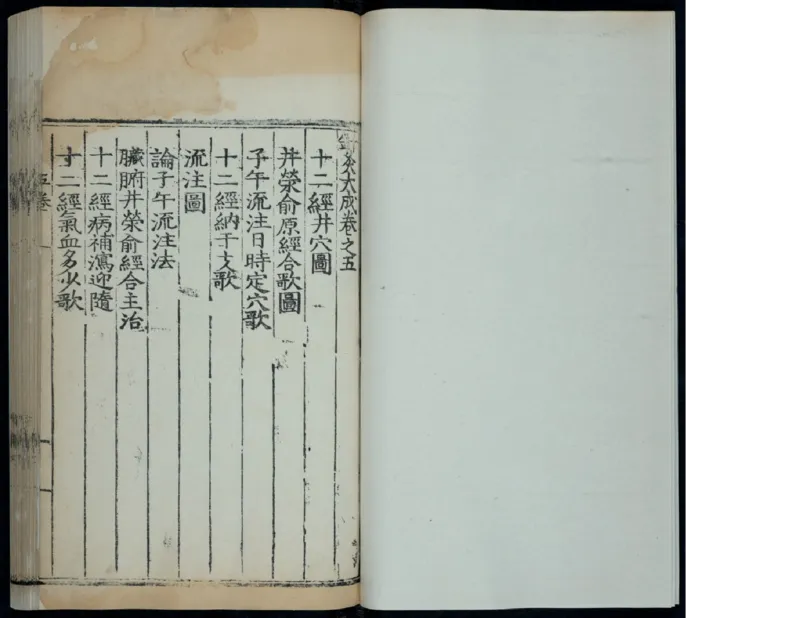 鍼灸大成卷之五
十二經井穴圖
井滎俞原經合歌圖
子午流注日時定穴歌
十二經納干支歌
流注圖
論子午流注法
臟腑井滎俞經合主治
十二經病補瀉迎隨
十二經氣血多少歌
五卷